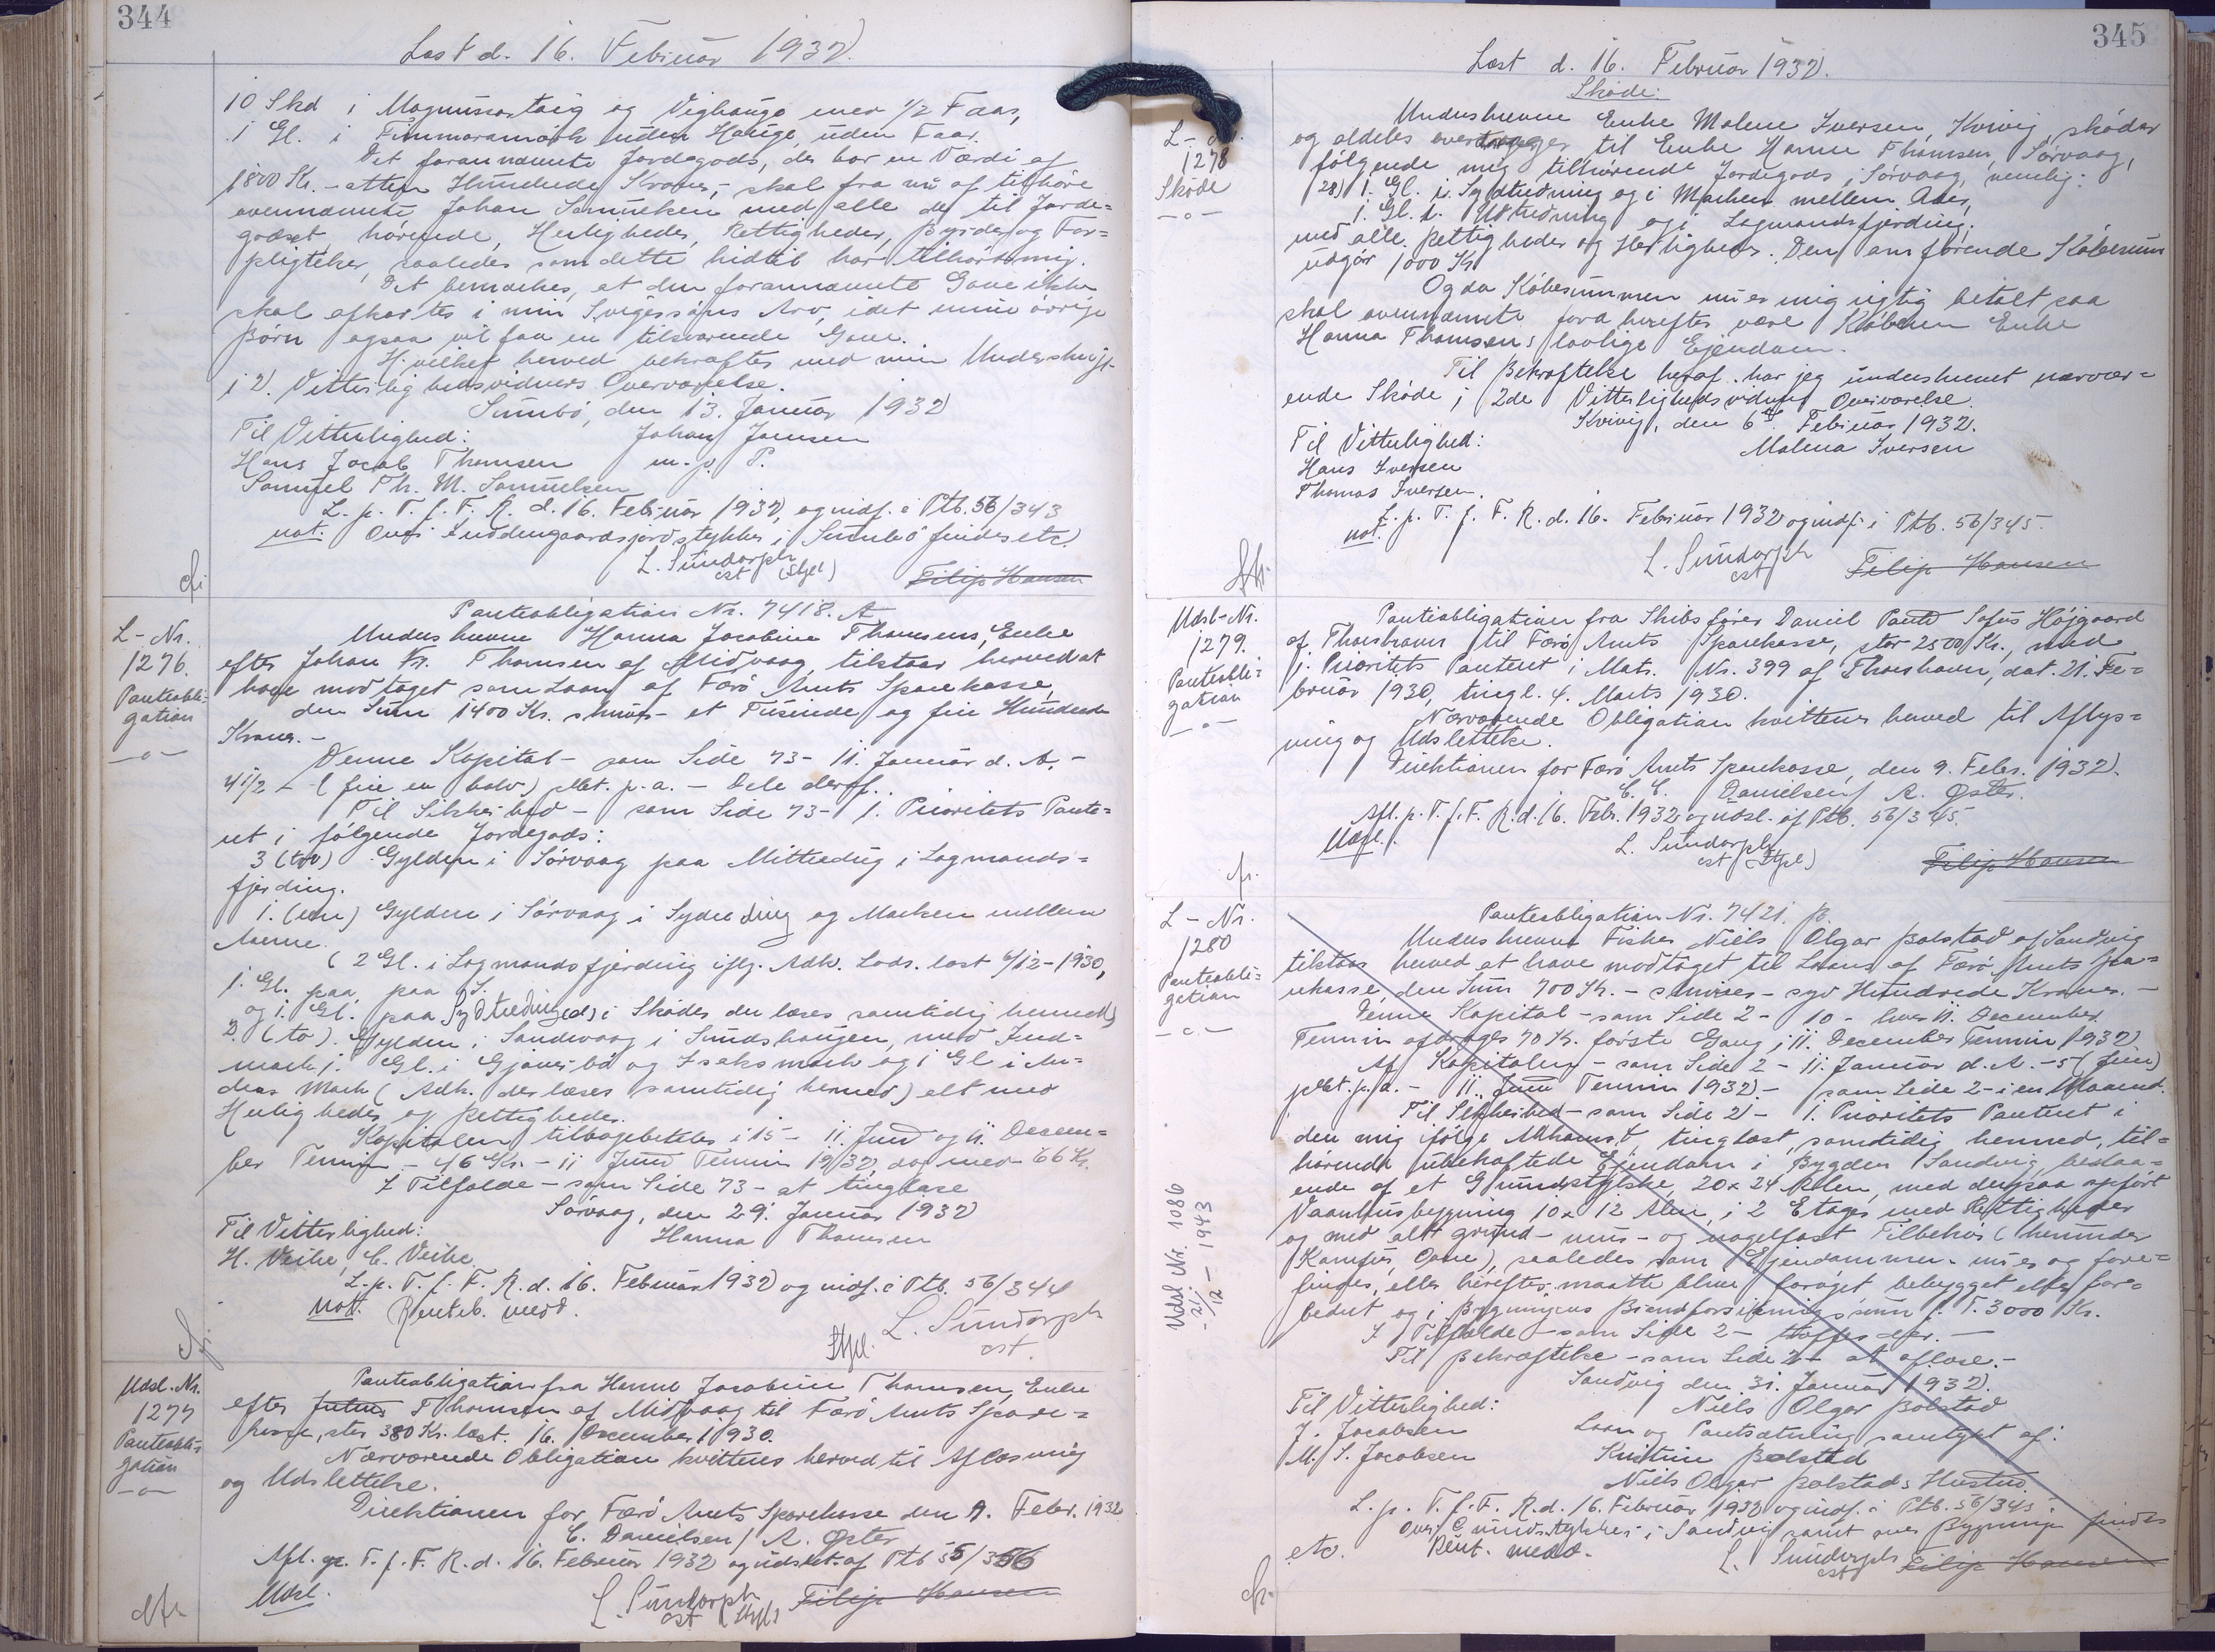 344
Læst d. 16. Februar 1932
10 Skd i Magnussartoig og Vighauge med 1/2 Faar,
1 Gl. i Fimmaramørk uden Hauge, uden Faar.
Det forannævnte Jordegods, der har en Værdi af
1800 Kr. - atten Hundrede Kroner, - skal fra nu af tilhøre
ovennævnte Johan Samuelsen med alle de til Jorde=
godset hørende Herligheder, Rettigheder, Byrder og For=
pligtelser, saaledes som dette hidtil har tilhørt mig.
Det bemærkes, at den forannævnte Gave ikke
skal afkortes i min Svigersøns Arv, idet mine øvrige
Børn ogsaa vil faa en tilsvarende Gave.
Hvilket herved bekræftes med min Underskrift
i 2 Vitterlighedsvidners Overværelse.
Sumbø, den 13. Januar 1932
Til Vitterlighed: Johan Joensen
Hans Jacob Thomsen m. p. P.
Samuel Th. M. Samuelsen
L. p. T. f. F. R. d. 16. Februar 1932, og indf. i Ptb. 56/343
not. Over Inddengaardsjordstykker i Sumbø findes etc.
L. Sundorph
cst (Stpl)
Filip Hansen
L-Nr.
1276.
Panteobli-
gation
-o-
Panteobligation Nr. 7418. A
Underskrevne Hanna Jacobine Thomsens, Enke
efter Johan Kr. Thomsen af Midvaag, tilstaar herved at
have modtaget som Laan af Færø Amts Sparekasse,
den Sum 1400 Kr. skriver - et Tusinde og fire Hundrede
Kroner. -
Denne Kapital - som Side 73 - 11. Januar d. A. -
4 1/2 - (fire en halv) pCt. p. a. - Dele deraf.
Til Sikkerhed - som Side 73 - 1. Prioritets Pante=
ret i følgende Jordegods:
3 (tre) Gylden i Sørvaag paa Mittreding i Lagmands=
fjerding.
1. (een) Gylden i Sørvaag i Sydreding og Marken mellem
Aaerne.
( 2 Gl. i Lagmandsfjerding iflg. Adk. Lods. læst 6/12-1930,
1. Gl. paa paa S.
og 1. Gl. paa Sydtreding(ed) i Skøder der læses samtidig hermed)
2. (to) Gylden i Sandevaag i Sundshaugen, med Ind=
mark, 1 Gl. i Gjønes bø og Isaksmark og 1 Gl i An=
dras Mark (Adk. der læses samtidig hermed) alt med
Herligheder og Rettigheder.
Kapitalen tilbagebetales i 15 - 11. Juni og 11. Decem=
ber Termin - 46 Kr. - 11 Juni Termin 1932, dog med 66 Kr.
I Tilfælde - som Side 73 - at tinglæse
Sørvaag, den 29. Januar 1932
Til Vitterlighed: Hanna Thomsen
H. Veihe, C. Veihe
L. p. T. f. F. R. d. 16. Februar 1932 og indf. i Ptb. 56/344
not. Renteb. medd.
Stpl. L. Sundorph
cst.
Udsl. Nr.
1277
Panteobli-
gation
-o-
Panteobligation fra Hanne Jacobine Thomsen, Enke
efter Julius Thomsen af Midvaag til Færø Amts Spare=
kasse, stor 380 Kr. læst. 16. December 1930.
Nærværende Obligation kvitteres herved til Aflæsning
og Udslettelse.
Direktionen for Færø Amts Sparekasse den 9. Febr. 1932
C. Danielsen / A. Øster
Afl. p. T. f. F. R. d. 16. Februar 1932 og udslet. af Ptb 55/356
Udsl.
L. Sundorph
cst (Stpl)
Filip Hansen
345
Læst d. 16. Februar 1932.
L-Nr.
1278
Skøde
-o-
Skøde:
Underskrevne Enke Malene Iversen, Kvivig, skøder
og aldeles overdrager til Enke Hanne Thomsen, Sørvaag,
følgende mig tilhørende Jordegods, Sørvaag, nemlig:
(28) 1. Gl. i Sydtredning og i Marken mellem Aaer,
1. Gl. i. Udtredning og i Lagmandsfjerding.
med alle Rettigheder og Herligheder. Den anførende Købesum
udgør 1000 Kr
Og da Købesummen nu er mig rigtig betalt, saa
skal ovennævnte Jord herefter være Køberen Enke
Hanna Thomsens lovlige Ejendom.
Til Bekræftelse heraf har jeg underskrevet nærvær=
ende Skøde i 2de Vitterlighedsvidners Overværelse.
Kvivig, den 6te Februar 1932.
Til Vitterlighed: Malena Iversen
Hans Iversen
Thomas Iversen.
L. p. T. f. F. R. d. 16. Februar 1932 og indf. i Ptb. 56/345.
not.
L. Sundorph
cst
Filip Hansen
Udsl-Nr.
1279.
Panteobli=
gation
-o-
Panteobligation fra Skibsfører Daniel Pauli Sofus Højgaard
af Thorshavn til Færø Amts Sparekasse, stor 2500 Kr., med
1. Prioritets Panteret i Matr. Nr. 399 af Thorshavn, dat. 21. Fe=
bruar 1930, tingl. 4. Marts 1930.
Nærværende Obligation kvitteres herved til Aflys=
ning og Udslettelse.
Direktionen for Færø Amts Sparekasse, den 9. Febr. 1932.
C. C. Danielsen / A. Øster.
Afl. p. T. f. F. R. d. 16. Febr. 1932 og udsl. af Ptb. 56/345.
Udsl.
L. Sundorph
cst (Stpl)
Filip Hansen
L-Nr.
1280
Panteobli=
gation
-o-
Panteobligation Nr. 7421. B.
Underskrevne Fisker Niels Olgar Bolstad af Sandvig
tilstaar herved at have modtaget til Laans af Færø Amts Spa=
rekasse, den Sum 700 Kr. - skriver - syv Hundrede Kroner. -
Denne Kapital - som Side 2 - 10 - hver 11. December
Termin afdrages 70 Kr. første Gang i 11. December Termin 1932.
Af Kapitalen - som Side 2 - 11. Januar d. A. - 5 (fem)
pCt. p. a. - 11. Juni Termin 1932. - som Side 2 - i en Maaned.
Til Sikkerhed - som Side 2 - 1. Prioritets Panteret i
den mig ifølge Adkomst, tinglæst samtidig hermed, til=
hørende ubehæftede Ejendom i Bygden Sandvig, bestaa=
ende af et Grundstykke, 20 x 24 Alen, med derpaa opført
Vaaningsbygning 10 x 12 Alen, i 2 Etager med Rettigheder
og med alt grund- mur- og nagelfast Tilbehør (herunder
Komfur, Ovne), saaledes som Ejendommen nu er og fore=
findes, eller herefter maatte blive forøget bebygget eller for=
bedret og i Bygningens Brandforsikringssum p. T. 3000 Kr.
I Tilfælde - som Side 2 - træffes der. -
Til Bekræftelse - som Side 2 - at aflæse. -
Sandvig den 31. Januar 1932.
Til Vitterlighed: Niels Olgar Bolstad
J. Jacobsen Laan og Pantsætning samtykt af:
M. S. Jacobsen Kristine Bolstad
Niels Olgar Bolstads Hustru
L. p. T. f. F. R. d. 16. Februar 1932 og indf. i Ptb. 56/345.
Over Grundstykker i Sandvig samt over Bygninger findes
etc. Rent. medd.
L. Sundorph
cst
Filip Hansen
Udsl Nr. 1086
- 21/12 - 1943